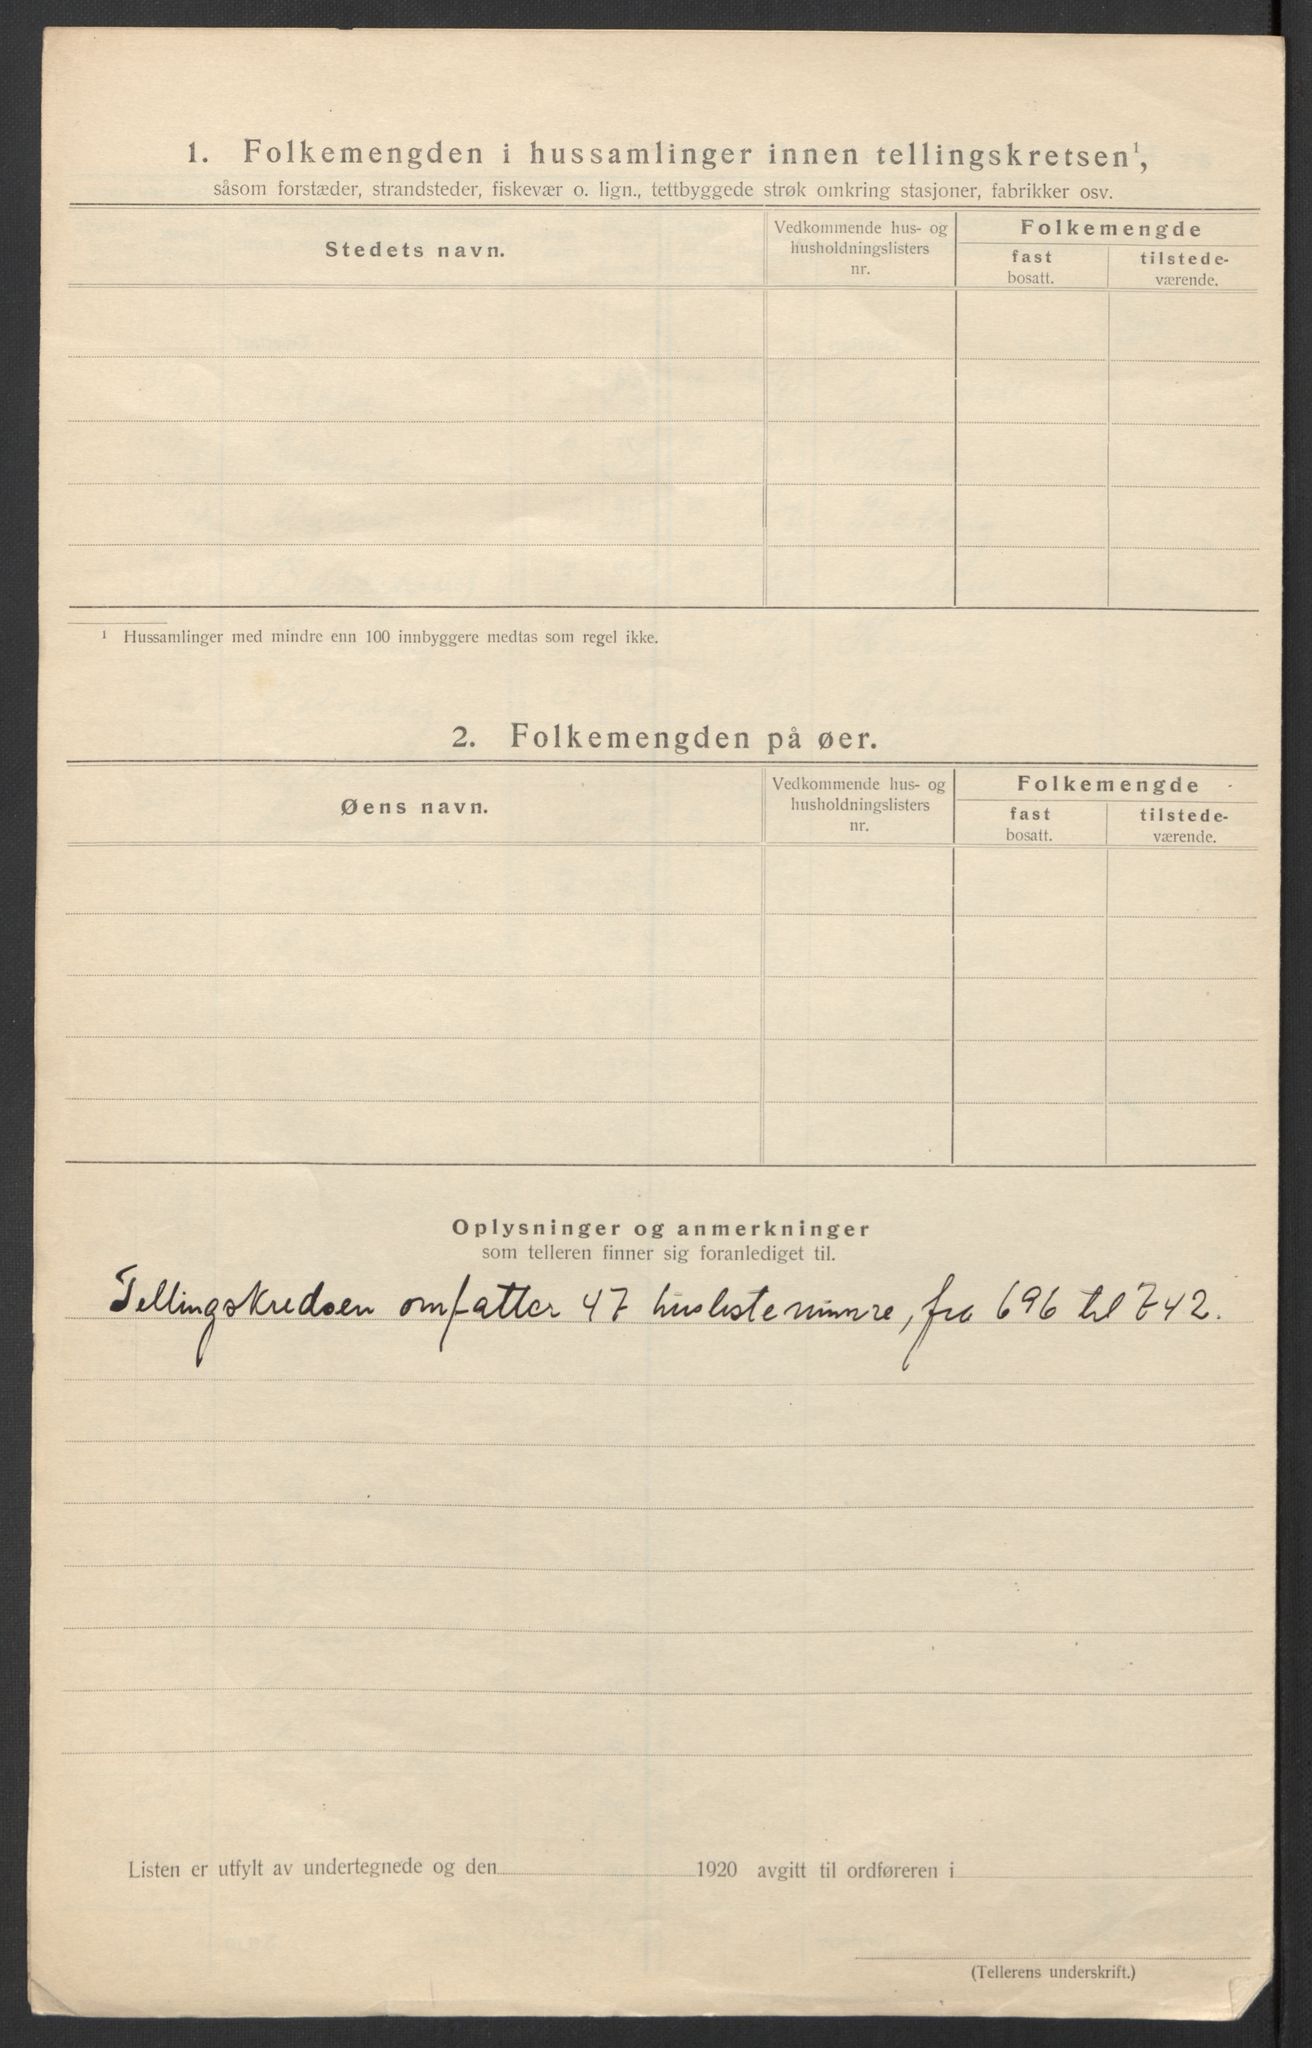 1. Folkemengden i hussamlinger innen tellingskretsen¹,
såsom forstæder, strandsteder, fiskevær o. lign., tettbyggede strøk omkring stasjoner, fabrikker osv.
Stedets navn.
Vedkommende hus- og
husholdningslisters
nr.
Folkemengde
fast
bosatt.
tilstede-
værende.
¹ Hussamlinger med mindre enn 100 innbyggere medtas som regel ikke.
2. Folkemengden på øer.
Øens navn.
Vedkommende hus- og
husholdningslisters
nr.
Folkemengde
fast
bosatt.
tilstede-
værende.
Oplysninger og anmerkninger
som telleren finner sig foranlediget til.
Tellingskredsen omfatter 47 huslistenumre, fra 696 til 742.
Listen er utfylt av undertegnede og den 1920 avgitt til ordføreren i
(Tellerens underskrift.)